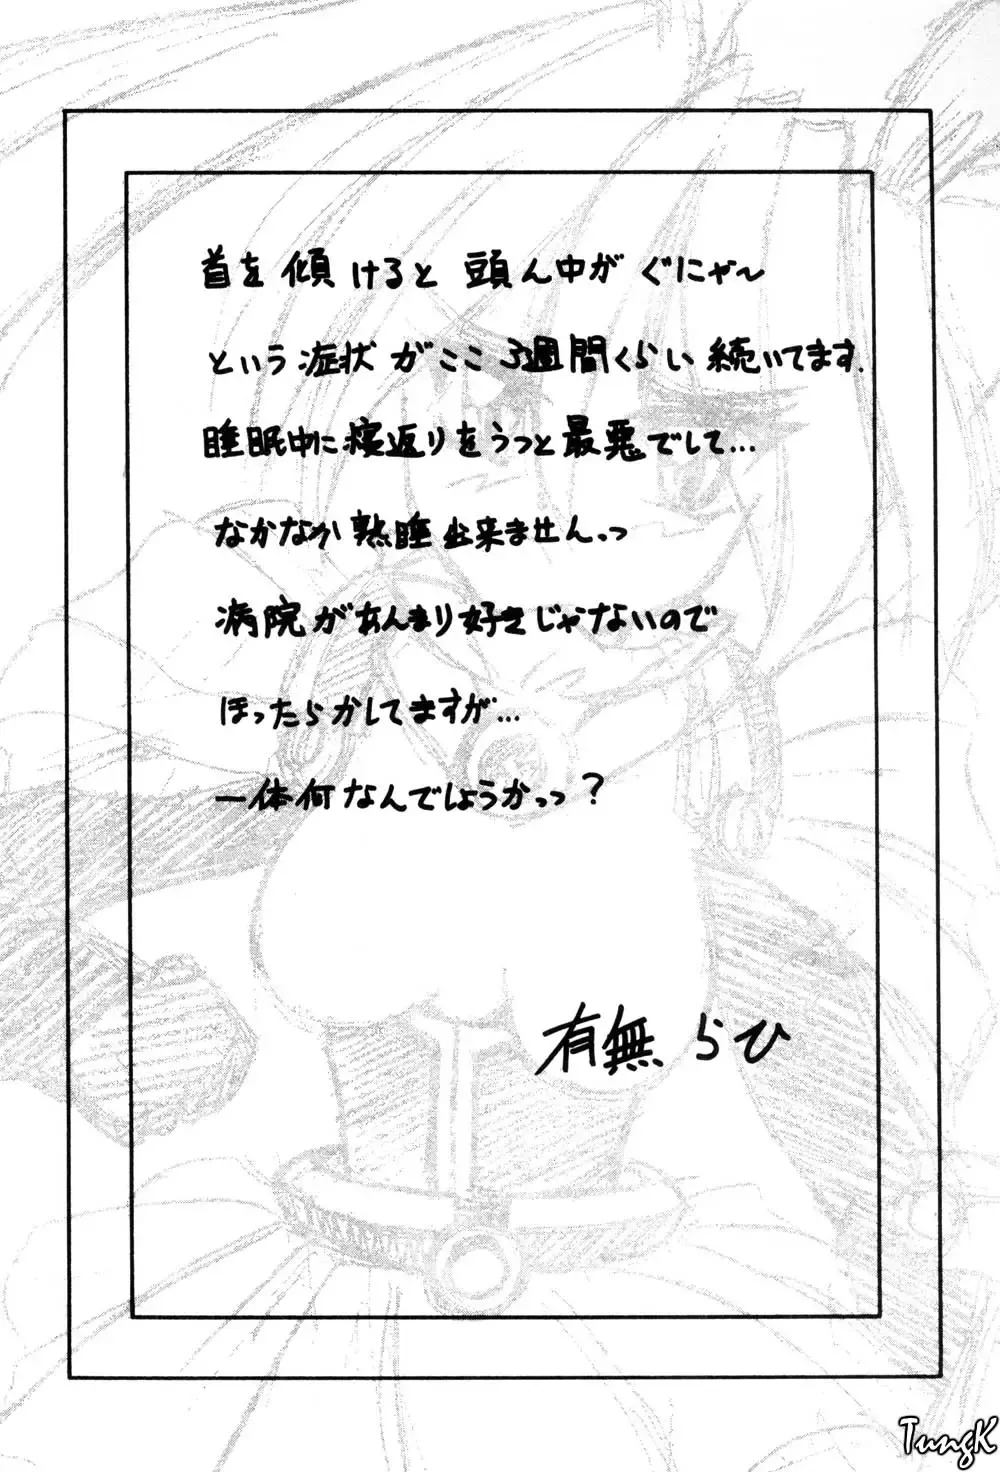 首を傾けると頭ん中がぐにゃ〜
という症状がここ3週間くらい続いてます.
睡眠中に寝返りをうつと最悪でして...
なかなか熟睡出来ませんっ
病院があんまり好きじゃないので
ほったらかしてますが...
一体何なんでしょうかっっ?
有無らひ
TungK